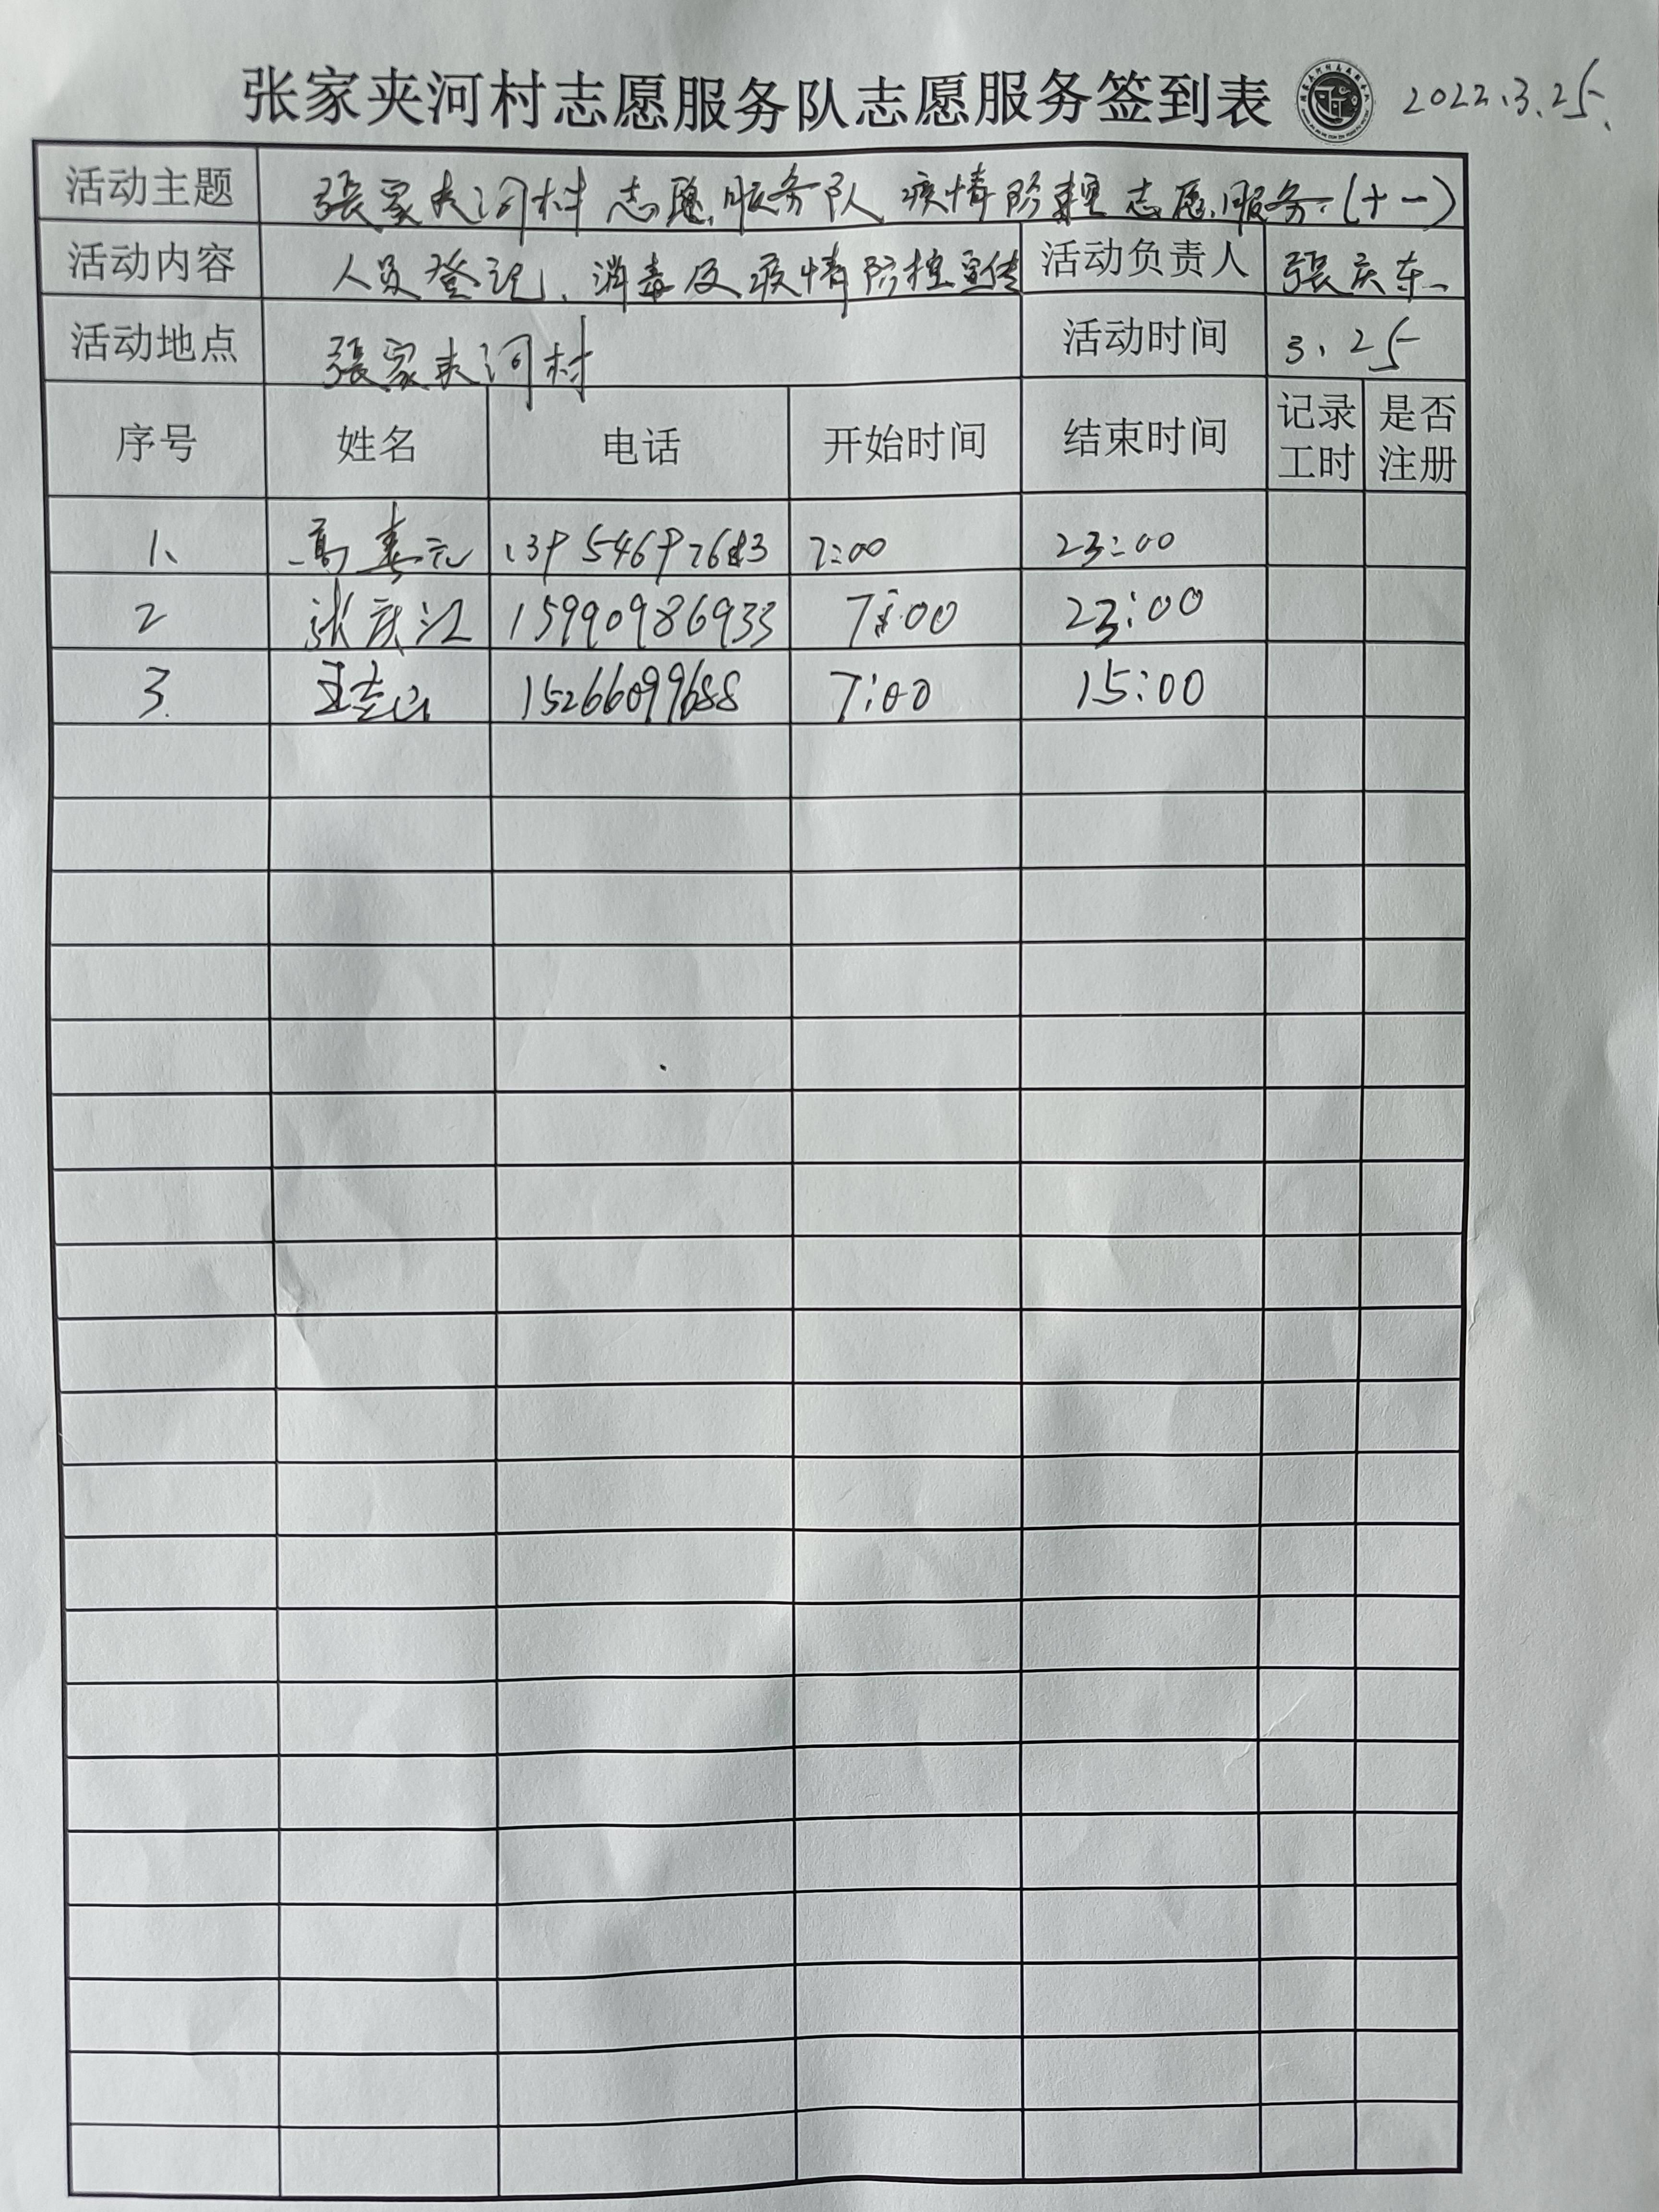 张家夹河村志愿服务队志愿服务签到表 2022.3.25.
活动主题 張家夹河村志愿服务队疫情防控志愿服务.(十一)
活动内容 人员登记、消毒及疫情防控宣传 活动负责人 張庆东
活动地点 張家夹河村 活动时间 3.25
序号 姓名 电话 开始时间 结束时间 记录工时 是否注册
1、 高 元 7:00 23:00
2 张庆江 15990986933 7:00 23:00
3. 15266099688 7:00 15:00